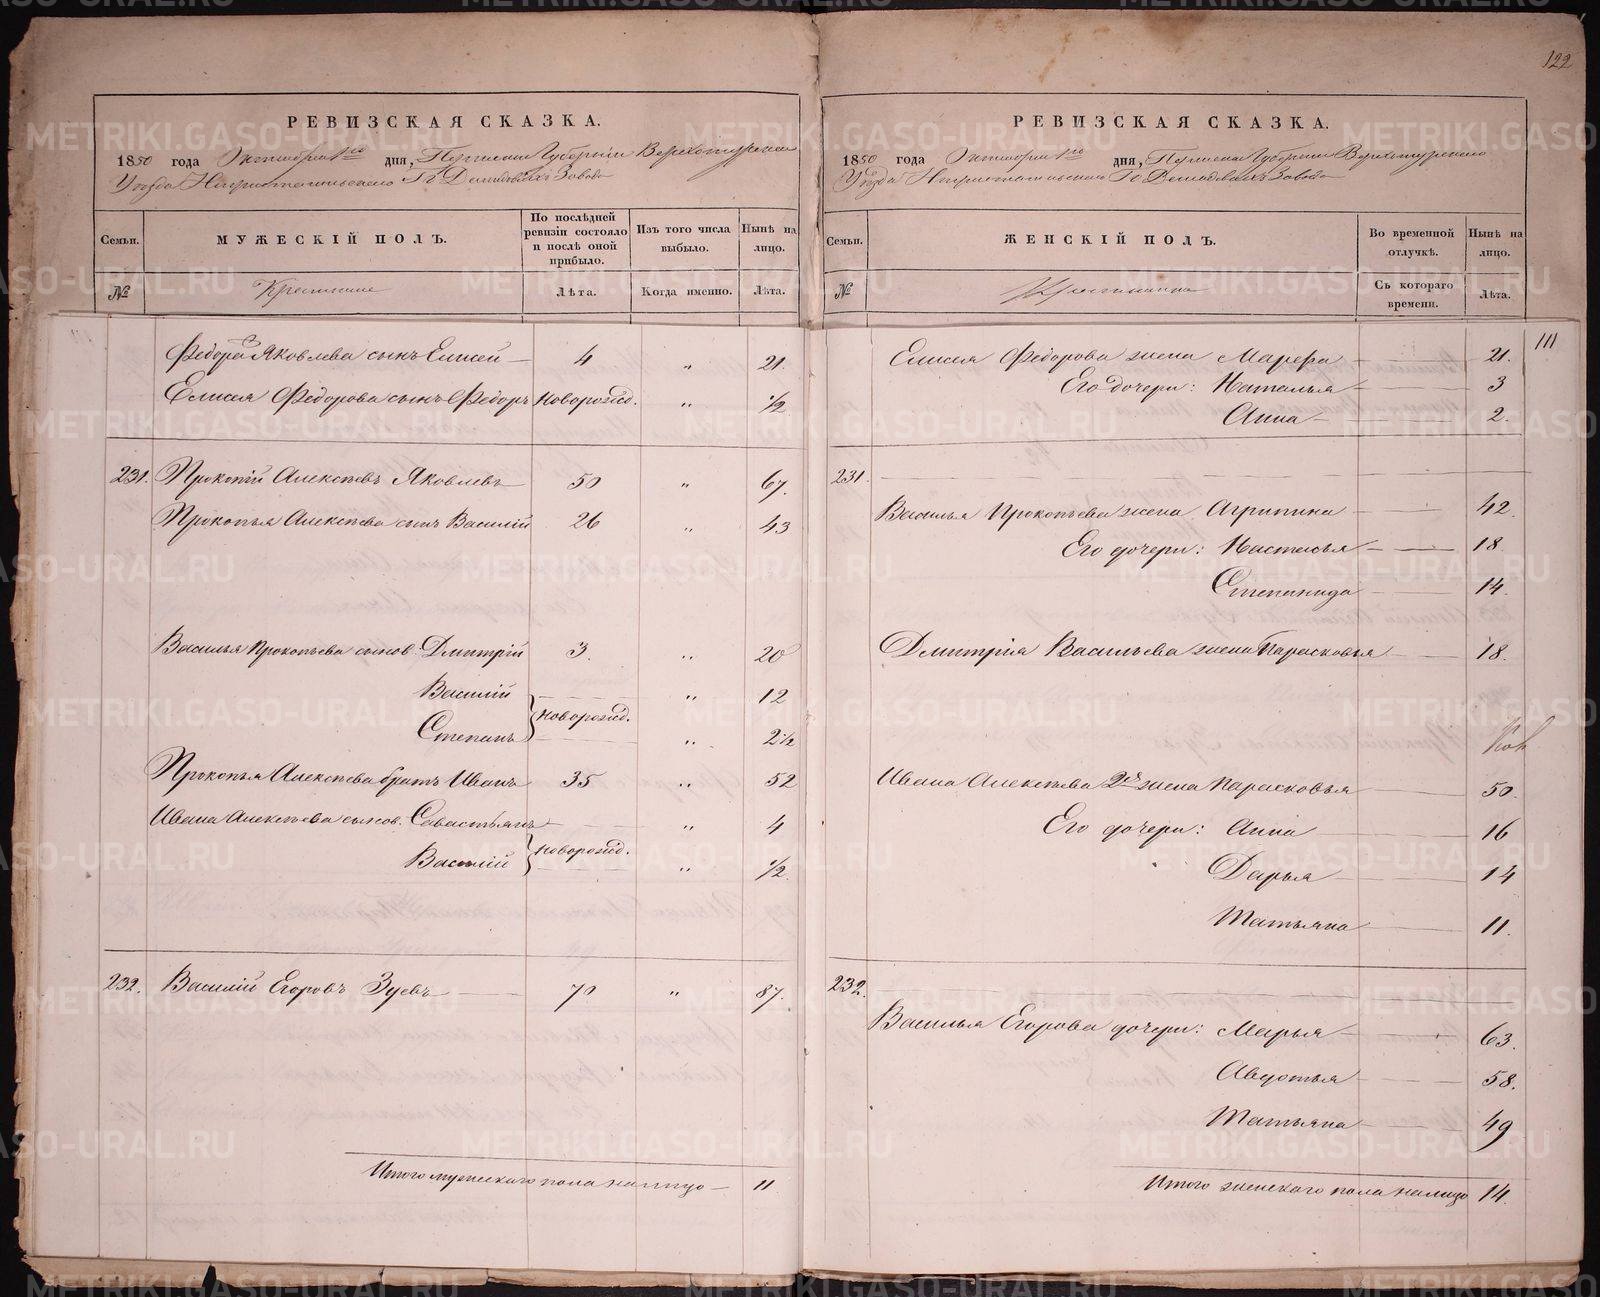 122
РЕВИЗСКАЯ СКАЗКА.
1850 года Октября 1го дня, Пермской Губерніи Верхотурскаго
Уѣзда Гг Демидовыхъ Завода
Семьи.
МУЖЕСКІЙ ПОЛЪ.
По послѣдней ревизіи состояло и послѣ оной прибыло.
Изъ того числа выбыло.
Нынѣ на лицо.
№
Крестьяне
Лѣта.
Когда именно.
Лѣта.
Федора Яковлева сынъ Елисей — 4 " 21.
Елисея Федорова сынъ Федоръ Новорожд. " 1/2
231. Прокопій Алексѣевъ Яковлевъ 50 " 67.
Прокопья Алексѣева сынъ Василій 26 " 43
Василья Прокопьева сынов. Дмитрій 3. " 20
Василій " 12
Новорожд.
Степанъ " 2 1/2
Прокопья Алексѣева братъ Иванъ 35 " 52
Ивана Алексѣева сынов. Савастьянъ " 4
Новорожд.
Василій " 1/2
232. Василій Егоровъ Зуевъ 70 " 87.
Итого мужескаго пола налицо — 11
РЕВИЗСКАЯ СКАЗКА.
1850 года Октября 1го дня, Пермской Губерніи Верхотурскаго
Уѣзда Гг Демидовыхъ Завода
Семьи.
ЖЕНСКІЙ ПОЛЪ.
Во временной отлучкѣ.
Нынѣ на лицо.
№
Съ котораго времени.
Лѣта.
111
Елисея Федорова жена Марфа 21.
Его дочери: Наталья 3
Анна 2.
231.
Василья Прокопьева жена Агрипина 42.
Его дочери: Настасья 18.
Степанида 14.
Дмитрія Васильева жена Парасковья 18.
Ивана Алексѣева 2я жена Парасковья 50.
Его дочери: Анна 16
Дарья 14
Татьяна 11.
232.
Василья Егорова дочери: Марья 63.
Авдотья 58.
Татьяна 49
Итого женскаго пола налицо 14.
METRIKI.GASO-URAL.RU